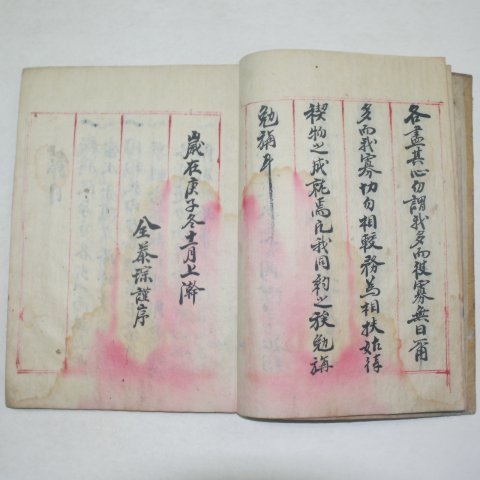 各盡其心勿謂我多而彼寡無曰爾
多而我寡切勿相較務為相扶始待
稧物之成就焉凡我同約之族勉旃
勉旃耳
歲在庚子冬十一月上澣
全泰琮謹序